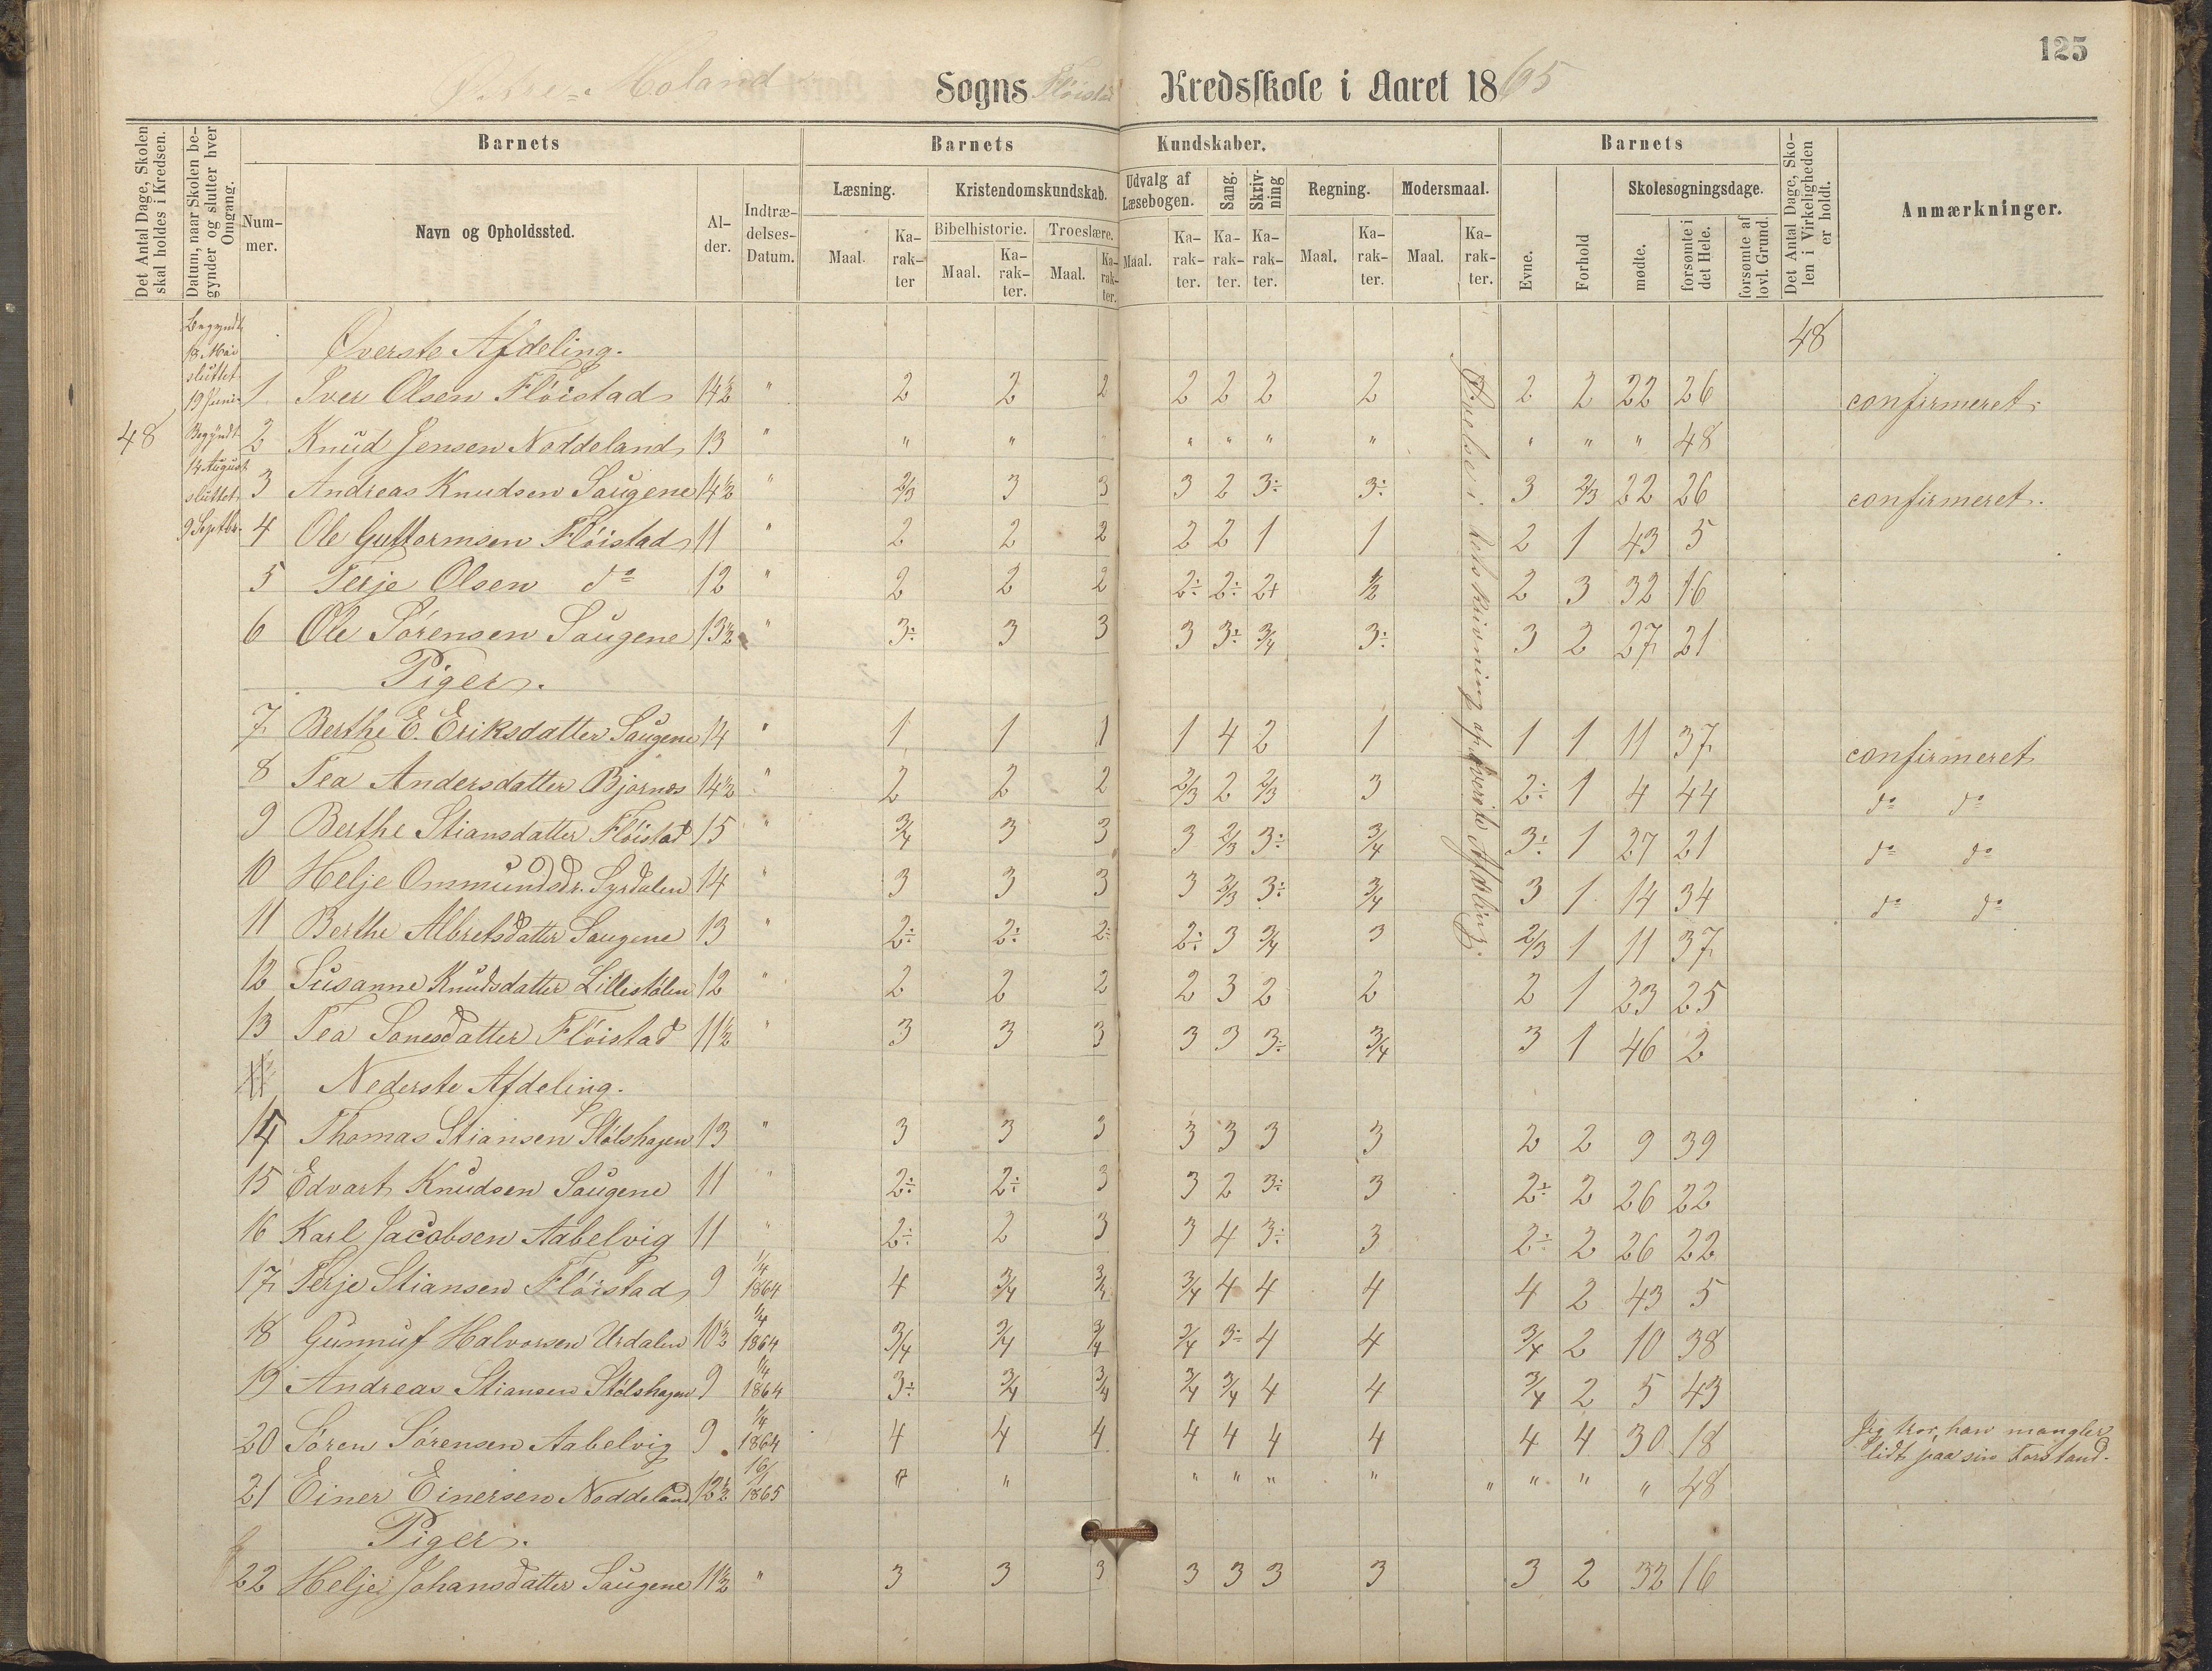 125
Øvre= Moland Sogns Fløistad Kredsskole i Aaret 1865
Det Antal Dage, Skolen skal holdes i Kredsen.
Datum, naar Skolen begynder og slutter hver Omgang.
Barnets
Nummer.
Navn og Opholdssted.
Alder.
Indtrædelses-Datum.
Barnets Kundskaber.
Læsning.
Maal. Karakter
Kristendomskundskab.
Bibelhistorie. Troeslære.
Maal. Karakter. Maal. Karakter.
Udvalg af Læsebogen.
Maal. Karakter.
Sang. Karakter.
Skrivning Karakter.
Regning.
Maal. Karakter.
Modersmaal.
Maal. Karakter.
Barnets
Evne. Forhold
Skolesøgningsdage.
mødte. forsømte i det Hele. forsømte af lovl. Grund.
Det Antal Dage, Skolen i Virkeligheden er holdt.
Anmærkninger.
48
Begyndt 18 Mai sluttet 19 Juni
Begyndt 14 August sluttet 9 Septbr.
Øverste Afdeling. 48
1 Iver Olsen Fløistad 14½ " 2 2 2 2 2 2 2 2 2 22 26 confirmeret.
2 Knud Jensen Noddeland 13 " " " " " " " " " " 48
3 Andreas Knudsen Saugene 14½ " 2/3 3 3 3 2 3÷ 3÷ 3 2/3 22 26 confirmeret.
4 Ole Guttormsen Fløistad 11 " 2 2 2 2 2 1 1 2 1 43 5
5 Terje Olsen do 12 " 2 2 2 2÷ 2÷ 2+ ½ 2 3 32 16
6 Ole Sørensen Saugene 13½ " 3÷ 3 3 3 3÷ 3/4 3÷ 3 2 27 21
Piger.
7 Berthe E. Eriksdatter Saugene 14 " 1 1 1 1 4 2 1 1 1 11 37 confirmeret
8 Tea Andersdatter Bjørnæs 14½ " 2 2 2 2/3 2 2/3 3 2÷ 1 4 44 do do
9 Berthe Stiansdatter Fløistad 15 " 3/4 3 3 3 2/3 3÷ 3/4 3÷ 1 27 21 do do
10 Helje Ommundsdr. Syrdalen 14 " 3 3 3 3 2/3 3÷ 3/4 3 1 14 34 do do
11 Berthe Albretsdatter Saugene 13 " 2÷ 2÷ 2÷ 2÷ 3 3/4 3 2/3 1 11 37
12 Susanne Knudsdatter Lillestølen 12 " 2 2 2 2 3 2 2 2 1 23 25
13 Tea Sonesdatter Fløistad 11½ " 3 3 3 3 3 3÷ 3/4 3 1 46 2
Øvelse i Retskrivning af Øverste Afdeling.
Nederste Afdeling.
14 Thomas Stiansen Stølshagen 13 " 3 3 3 3 3 3 3 2 2 9 39
15 Edvart Knudsen Saugene 11 " 2÷ 2÷ 3 3 2 3÷ 3 2÷ 2 26 22
16 Karl Jacobsen Aabelvig 11 " 2÷ 2 3 3 4 3÷ 3 2÷ 2 26 22
17 Terje Stiansen Fløistad 9 1/4 1864 4 3/4 3/4 3/4 4 4 4 4 2 43 5
18 Gunnuf Halvorsen Urdalen 10½ 1/4 1864 3/4 3/4 3/4 3/4 3÷ 4 4 3/4 2 10 38
19 Andreas Stiansen Stølshagen 9 1/4 1864 3÷ 3/4 3/4 3/4 3/4 4 4 3/4 2 5 43
20 Søren Sørensen Aabelvig 9 1/4 1864 4 4 4 4 4 4 4 4 4 30 18 Jeg tror, han mangler lidt paa sin Forstand.
21 Einer Einersen Noddeland 12½ 16/1 1865 " " " " " " " " " " 48
Piger.
22 Helje Johansdatter Saugene 11½ " 3 3 3 3 3 3 3 3 2 32 16